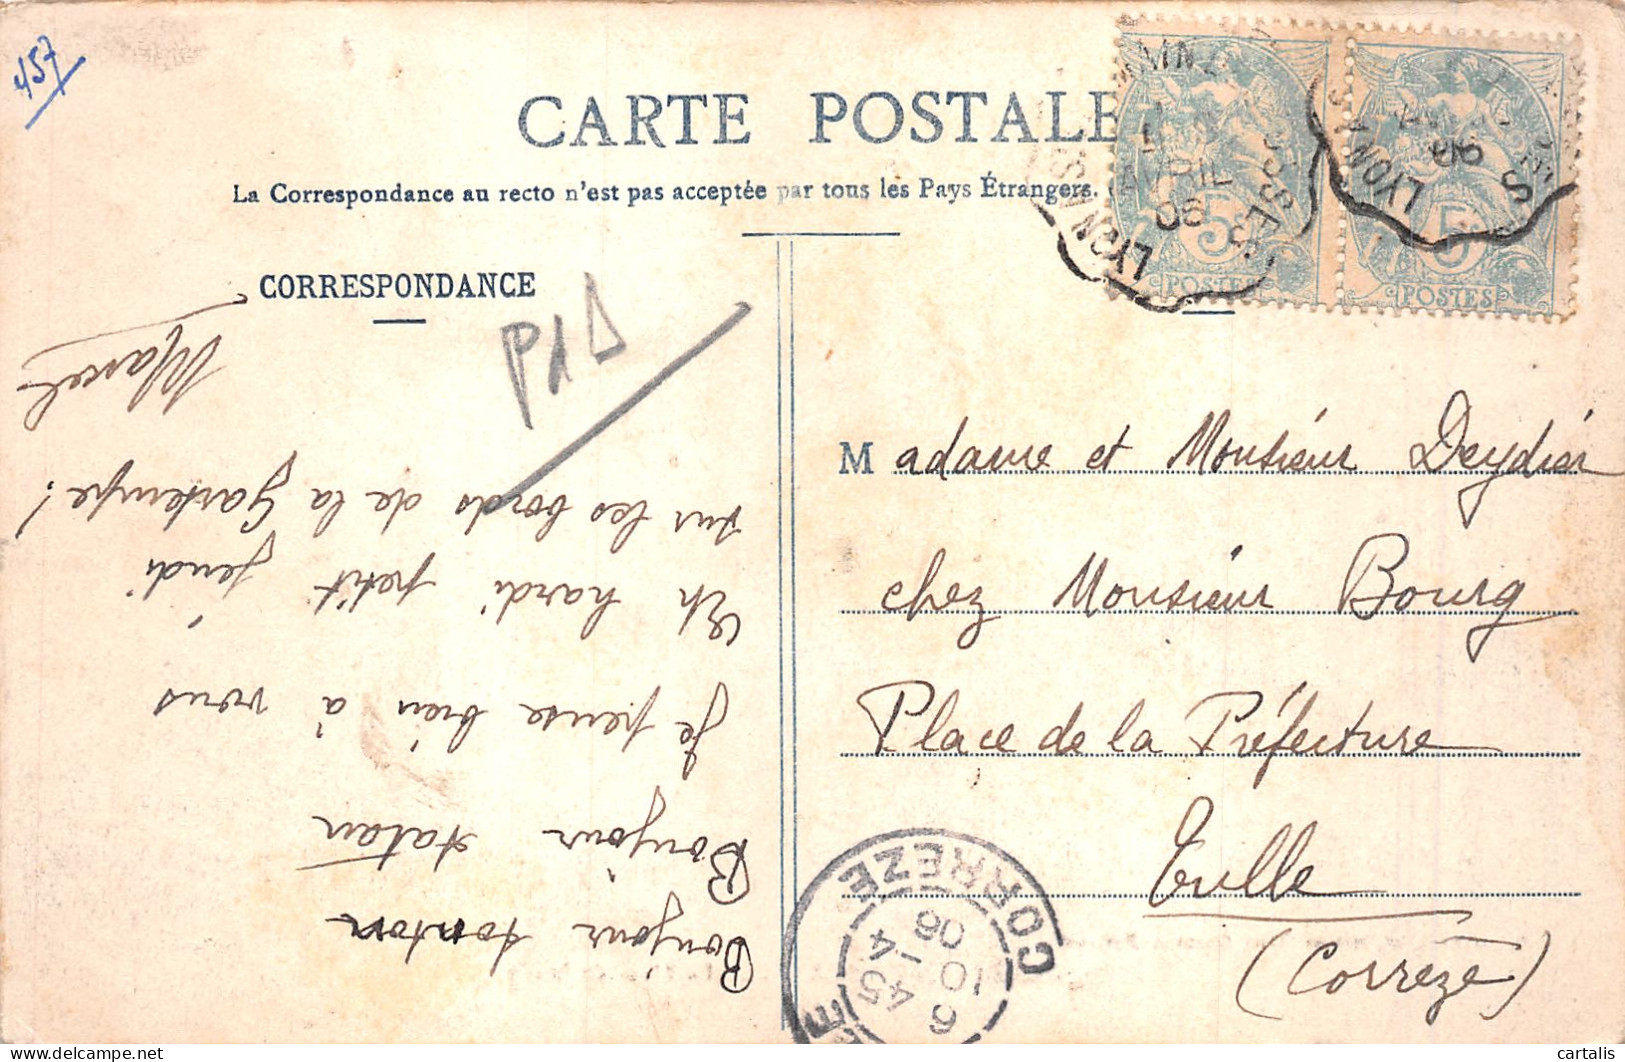 457
CARTE POSTALE
La Correspondance au recto n'est pas acceptée par tous les Pays Étrangers.
CORRESPONDANCE
Bonjour tonton
Bonjour tatan
Je pense bien à vous
Eh hardi petit jeudi
sur les bords de la Gartempe!
Marcel
Madame et Monsieur Deydier
chez Monsieur Bourg
Place de la Préfecture
Tulle
(Corrèze)
AVRIL
06
LYON A S
5
POSTES
06
LYON A S
5
POSTES
CORREZE
cartalis